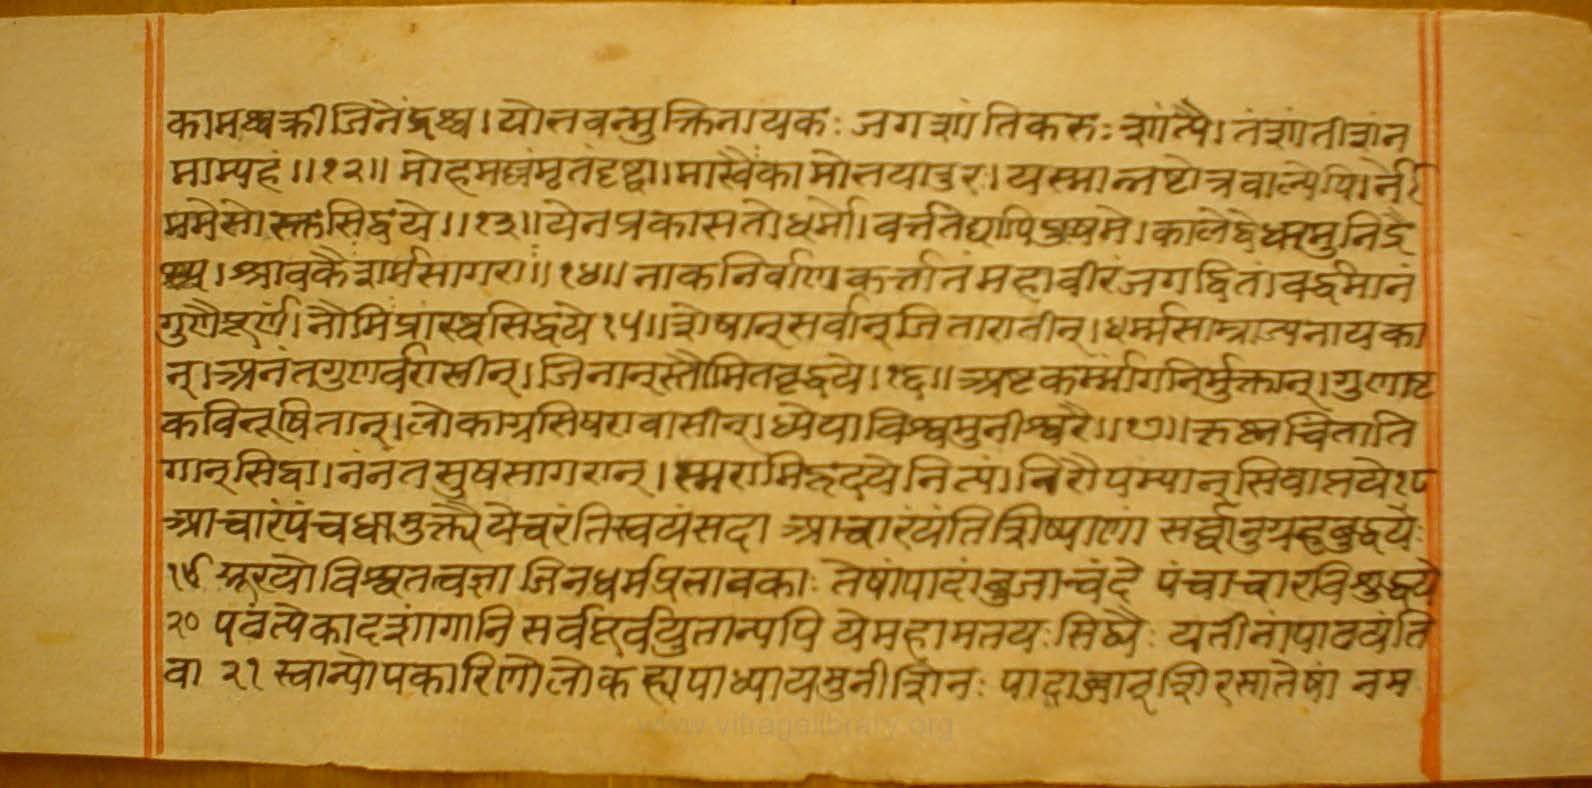 कामश्चक्री जिनेंद्रश्च। योत्नवन्मुक्तिनायकः जगशांतिकरुः शांत्यै। तं शांतीशं न
माम्यहं॥१२॥ मोहमल्लंमृतंदृष्ट्वा।मारवैंकामोत्नयातुरः।यस्मान्नष्टोत्रवाल्येपि।र्ने
ममेसोस्क्तसिद्धये॥१३॥येनप्रकासतोधर्मो।वर्त्ततेद्यापि
श्रावकैशर्मसागरा॥१४॥नाकनिर्वाणकर्त्तातंमहावीरंजगद्धितं।वर्द्धमानं
१५॥शेषान्सर्वान्जितारातीन्।धर्म्मसाम्राज्यनायका
न्।अनंतगुण जिनान्स्तौमितद्वृद्धये।१६॥अष्टकर्म्मांगनिर्मुक्तान्।गुणाष्ट
कवित्नूषितान्।लोकाग्रसिषरावासीन्।ध्येयाविश्वमुनीश्वरै॥१७॥
गान्सिद्धा।नंनतसुषसागरान्।स्मरामिहृदये नित्यं।निरौपम्यान्सिवाप्तये१८
आचारंपंचधामुक्त्यै येचरंतिस्वयंसदा आचारंयंतिशिष्याणां सर्वानुग्रहबुद्धयेः
१९ सूरयो विश्वतत्त्वज्ञा जिनधर्मप्रत्नावकाः तेषांपादांबुजान्वंदे पंचाचारविशुद्धये
२० पठंत्येकादशांगानि सर्वपूर्वयुतान्यपि येमहामतयः सिध्यैः यतीनांपाठयंति
वा २१ स्वान्योपकारिणो लोक ह्युपाध्यायमुनीशिनः पादाब्जान् शिरसातेषां नम
www.vitragelibrary.org